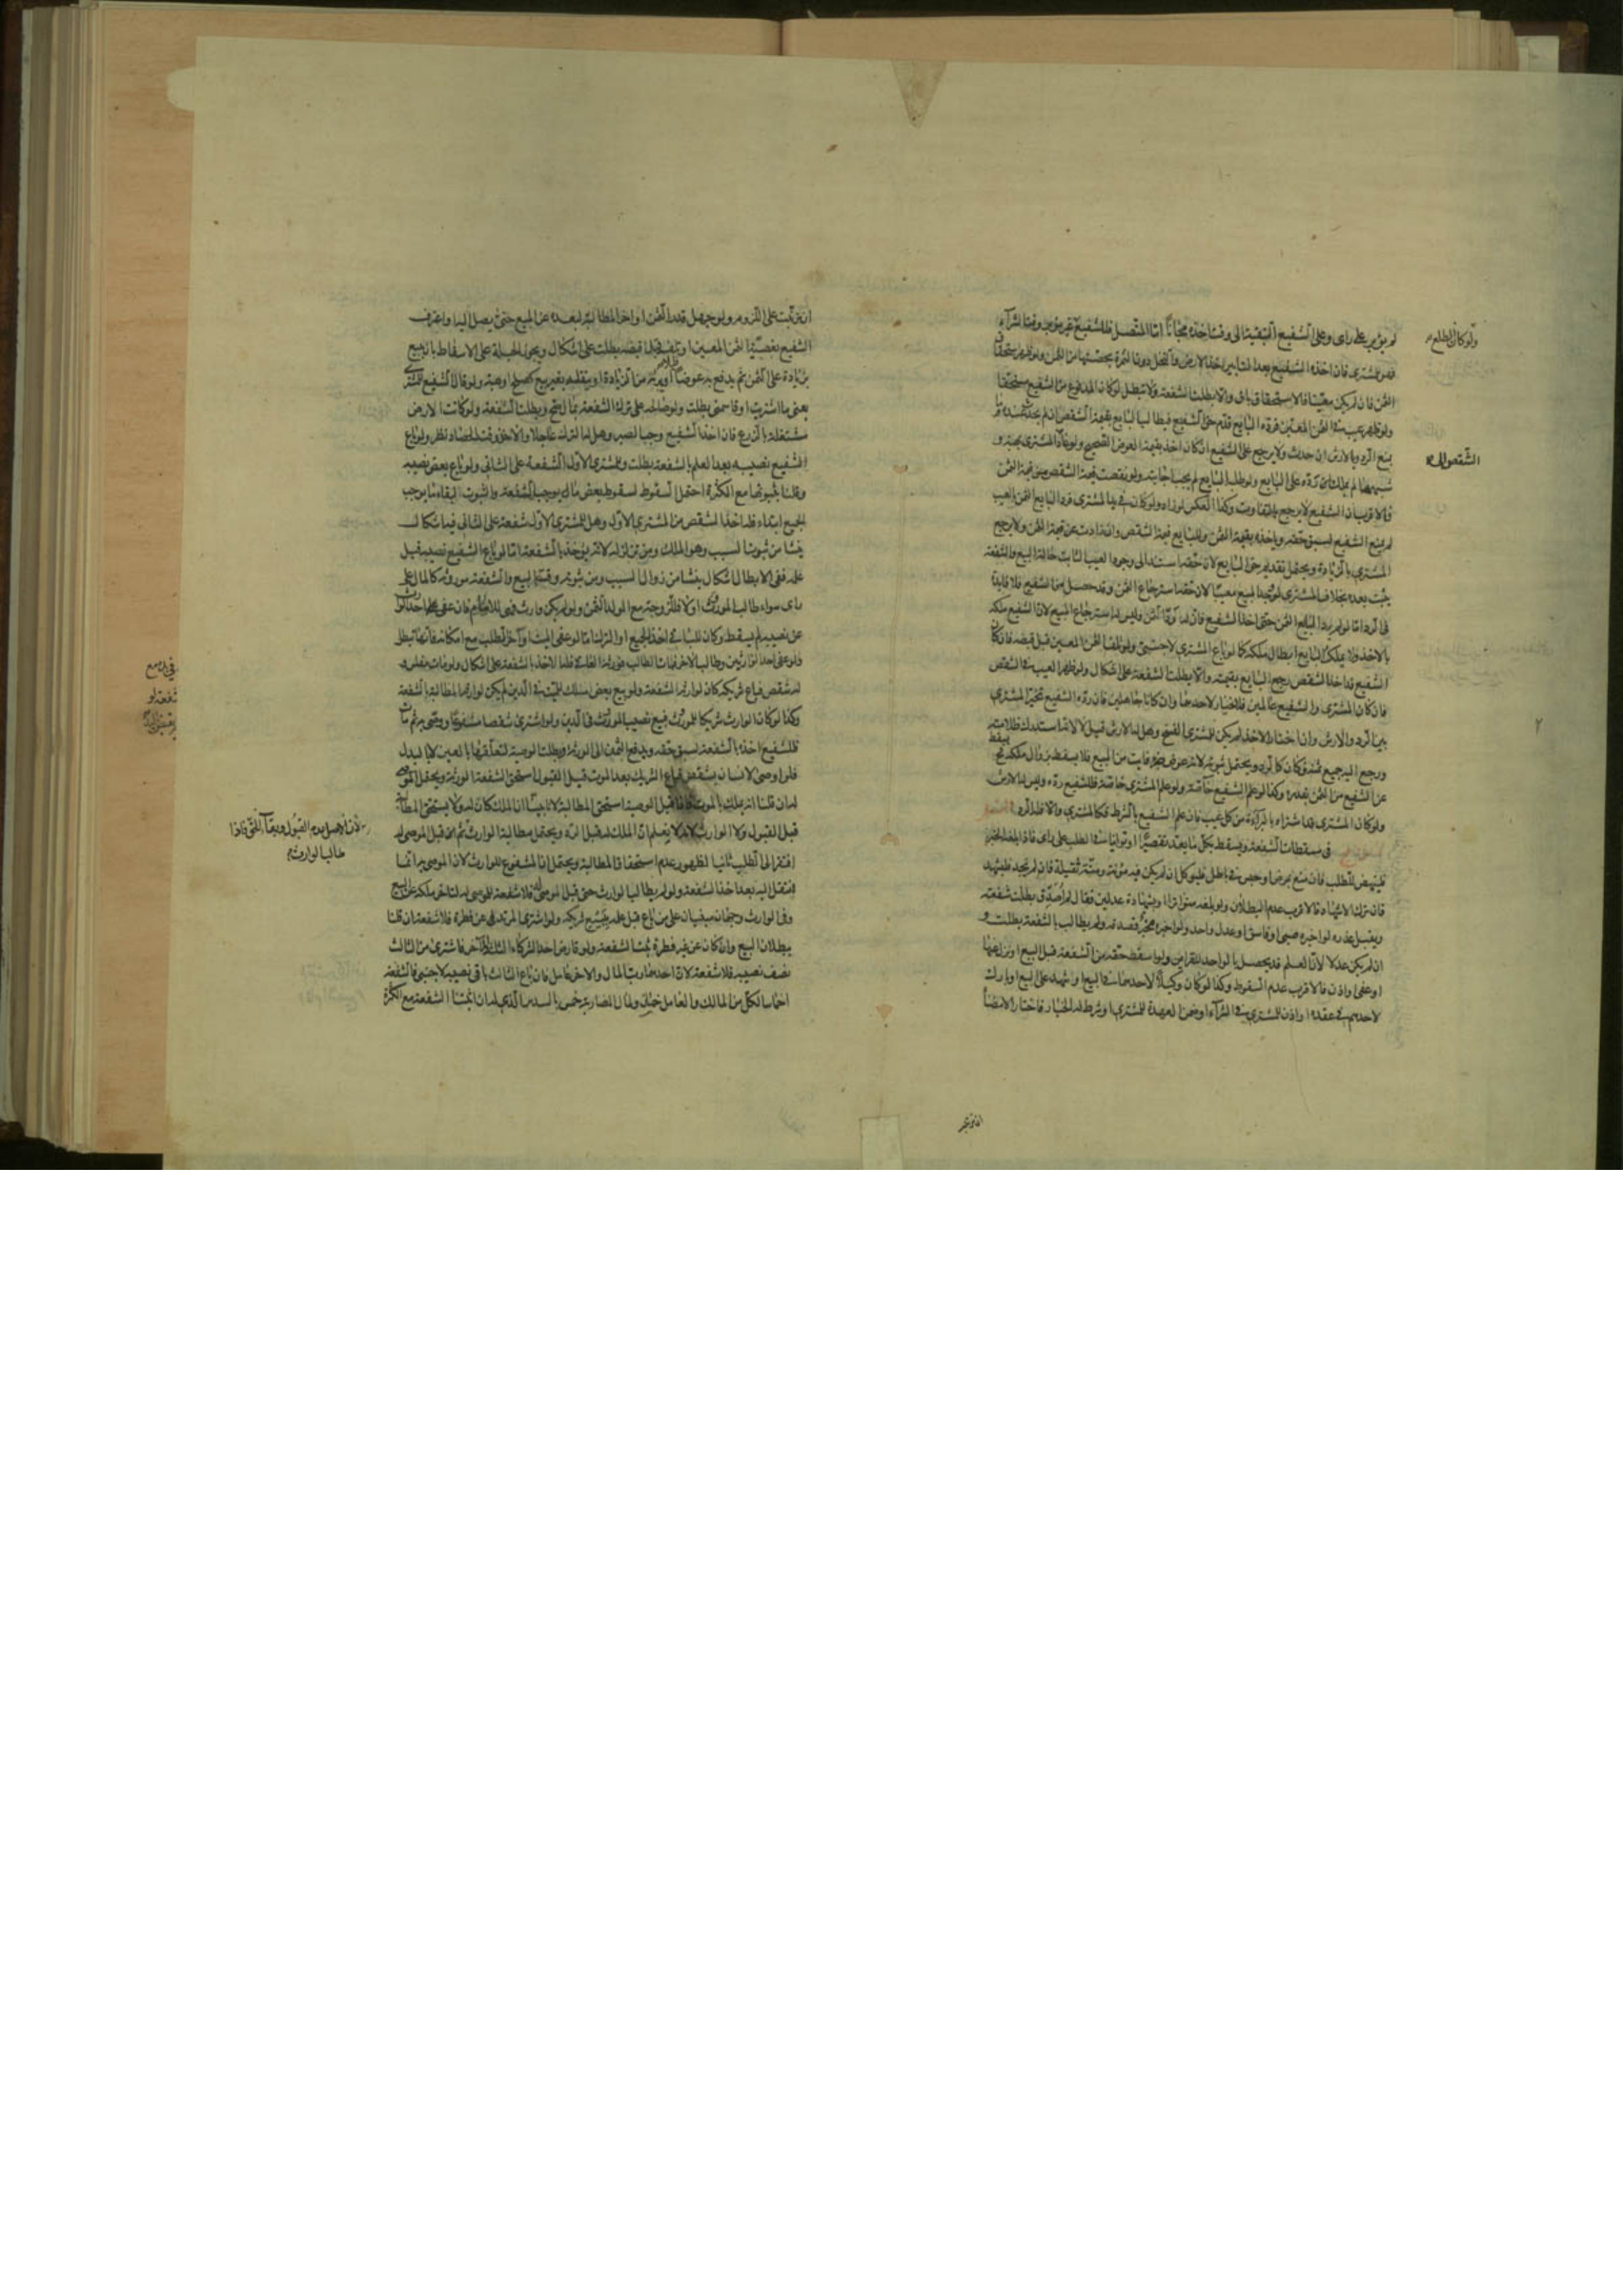 لو يؤبر على راى وعلى الشفيع التبقية الى وقت اخذه مجانا اما المتصل فللشفيع غير مؤبر وقت الشرآء
فهو للمشترى فان اخذه الشفيع بعد التأبير اخذ الارض والنخل دون الثمرة بحصتهما من الثمن ولو ظهر استحقاق
الثمن فان لم يكن معينا فالاستحقاق باق والا بطلت الشفعة ولا تبطل لو كان المدفوع من الشفيع مستحقا
ولو ظهر عيب فى الثمن المعين فرده البايع قدم حق الشفيع فيطالب البايع بقيمة الشقص ان لم يحدث عنده ما
يمنع الرد وبالارش ان حدث ولا يرجع على الشفيع ان كان اخذ بقيمة العوض الصحيح ولو عاد الى المشترى بهبة و
شبهها لم يملك رده على البايع ولو طلبه البايع لم يجب اجابته ولو نقصت قيمة الشقص عن قيمة الثمن
فالاقرب ان الشفيع لا يرجع بالتفاوت وكذا العكس لو زاد ولو كان فى يد المشترى فرد البايع الثمن بالعيب
لم يمنع الشفيع لسبق حقه وياخذه بقيمة الثمن وللبايع قيمة الشقص وان زادت عن قيمة الثمن ولا يرجع
المشترى بالزيادة ويحتمل تقديم حق البايع لان حقه استند الى وجود العيب الثابت حالة البيع والشفعة
يثبت بعده بخلاف المشترى لو وجد المبيع معيبا لان حقه استرجاع الثمن وقد حصل من الشفيع فلا فايدة
فى الرد اما لو لم يرد البايع الثمن حتى اخذ الشفيع فان له رد الثمن وليس له استرجاع المبيع لان الشفيع ملكه
بالاخذ فلا يملك البايع ابطال ملكه كما لو باع المشترى لاجنبى ولو تلف الثمن المعين قبل قبضه فان كان
الشفيع قد اخذ الشقص رجع البايع بقيمته والا بطلت الشفعة على اشكال ولو ظهر العيب فى الشقص
فان كان المشترى والشفيع عالمين فلا خيار لاحدهما وان كانا جاهلين فان رده الشفيع تخير المشترى
بين الرد والارش وان اختار الاخذ لم يكن للمشترى الفسخ وهل له الارش قيل لا لانه استدرك ظلامته
ورجع اليه جميع ثمنه فكان كالرد ويحتمل ثبوته لانه عوض جزء فايت من المبيع فلا يسقط بزوال ملكه فح يسقط
عن الشفيع من الثمن بقدره وكذا لو علم الشفيع خاصة ولو علم المشترى خاصة فللشفيع رده وليس له الارش
ولو كان المشترى قد اشتراه بالبراءة من كل عيب فان علم الشفيع بالشرط فكالمشترى والا فله الرد
فى مسقطات الشفعة ويسقط بكل ما يعد تقصيرا او توانيا فى الطلب على راى فاذا بلغه الخبر
فلينهض للطلب فان منع بمرض او حبس فى باطل فليوكل ان لم يكن فيه مؤنة ومنة ثقيلة فان لم يجد فليشهد
فان ترك الاشهاد فالاقرب عدم البطلان ولو بلغه متواترا او بشهادة عدلين فقال لم اصدق بطلت شفعته
ويقبل عذره لو اخبره صبى او فاسق او عدل واحد ولو اخبره مخبر فصدقه ولم يطالب بالشفعة بطلت و
ان لم يكن عدلا لان العلم قد يحصل بالواحد للقراين ولو اسقط حقه من الشفعة قبل البيع او نزل عنها
او عفى او اذن فالاقرب عدم السقوط وكذا لو كان وكيلا لاحدهما فى البيع او شهد على البيع او بارك
لاحدهم فى عقده او اذن للمشترى فى الشرآء او ضمن العهدة للمشترى او شرط له الخيار فاختار الامضآ
ولو كان الطلع
الشقص الى
٢
ان ترتبت على اللزوم ولو جهل قدر الثمن او اخر المطالبة لبعده عن المبيع حتى يصل اليه او اعترف
الشفيع بغصبية الثمن المعين او تلف قبل قبضه بطلت على اشكال ويجوز الحيلة على الاسقاط بان يبيع
بزيادة على الثمن ثم يدفع به عوضا او يبرئه من الزيادة او ينقله بغير بيع كصلح او هبة ولو قال الشفيع للمشترى
بعنى ما اشتريت او قاسمنى بطلت ولو صالحه على ترك الشفعة بمال صح وبطلت الشفعة ولو كانت الارض
مشتغلة بالزرع فان اخذ الشفيع وجب الصبر وهل له الترك عاجلا والاخذ وقت الحصاد نظر ولو باع
الشفيع نصيبه بعد العلم بالشفعة بطلت وللمشترى الاول الشفعة على الثانى ولو باع بعض نصيبه
وقلنا بثبوتها مع الكثرة احتمل السقوط لسقوط بعض ما يوجب الشفعة والثبوت لبقاء ما يوجب
الجميع ابتداء فله اخذ الشقص من المشترى الاول وهل للمشترى الاول شفعة على الثانى فيه اشكال
ينشا من ثبوت السبب وهو الملك ومن تزلزله لانه يؤخذ بالشفعة اما لو باع الشفيع نصيبه قبل
علمه ففى الابطال اشكال ينشا من زوال السبب ومن ثبوته وقت البيع والشفعة موروثة كالمال على
راى سواء طالب المورث او لا فللزوجة مع الولد الثمن ولو لم يكن وارث فهى للامام فان عفى احد الوراث
عن نصيبه لم يسقط وكان للباقى اخذ الجميع او الترك اما لو عفى الميت او آخر الطلب مع امكانه فانها تبطل
ولو عفى احد الوارثين وطالب الاخر فمات الطالب فورثه العافى فله الاخذ بالشفعة على اشكال ولو مات مفلس و
له شقص فباع شريكه كان لوارثه الشفعة ولو بيع بعض ملك الميت فى الدين لم يكن لوارثه المطالبة بالشفعة
وكذا لو كان الوارث شريكا للمورث فبيع نصيب المورث فى الدين ولو اشترى شقصا مشفوعا ووصى به ثم مات
فللشفيع اخذه بالشفعة لسبق حقه ويدفع الثمن الى الورثة وبطلت الوصية لتعلقها بالعين لا بالبدل
فلو اوصى لانسان بشقص فباع الشريك بعد الموت قبل القبول استحق الشفعة الورثة ويحتمل الموصى
له ان قلنا انه يملك بالموت فاذا قبل الوصية استحق المطالبة لانا تبينا ان الملك كان له ولا يستحق المطالبة
قبل القبول ولا الوارث لانا لا نعلم ان الملك له قبل الرد ويحتمل مطالبة الوارث ثم ان قبل الموصى له
افتقر الى الطلب ثانيا لظهور عدم استحقاق المطالبة ويحتمل ان المشفوع للوارث لان الموصى به انما
انتقل اليه بعد اخذ الشفعة ولو لم يطالب الوارث حتى قبل الموصى له فلا شفعة للموصى له لتاخر ملكه عن البيع
وفى الوارث وجهان مبنيان على من باع قبل علمه ببيع شريكه ولو اشترى المرتد عن فطرة فلا شفعة ان قلنا
ببطلان البيع وان كان عن غير فطرة ثبت الشفعة ولو قارض احد الشركاء الثلثة آخر فاشترى من الثالث
نصف نصيبه فلا شفعة لان احدهما رب المال والاخر عامل فان باع الثالث باقى نصيبه لاجنبى فالشفعة
اخماسا لكل من المالك والعامل خمسان ولمال المضاربة خمس بالسدس الذى له ان اثبتنا الشفعة مع الكثرة
لان الاصل عدم القبول وبقآء الحق فاذا
طالب الوارث
ان ترتب